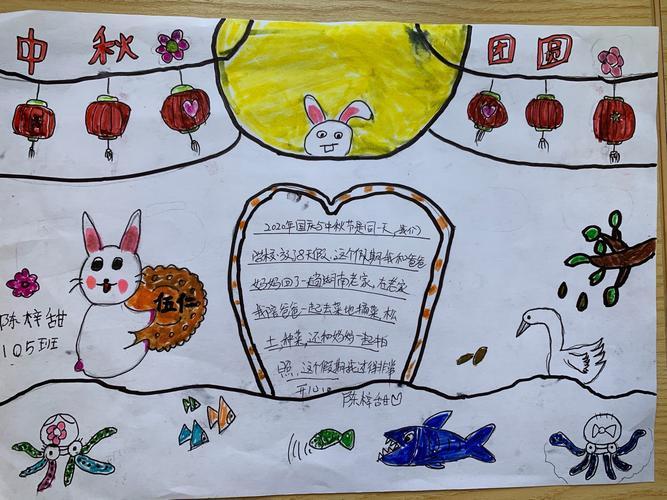 中秋
团圆
2020年国庆与中秋节是同一天,我们
学校放了8天假,这个假期我和爸爸
妈妈回了一趟湖南老家,在老家
我陪爸爸一起去菜地摘菜,松
土,种菜,还和奶奶一起拍
照,这个假期我过得非常
开心。
陈梓甜
伍仁
陈梓甜
105班